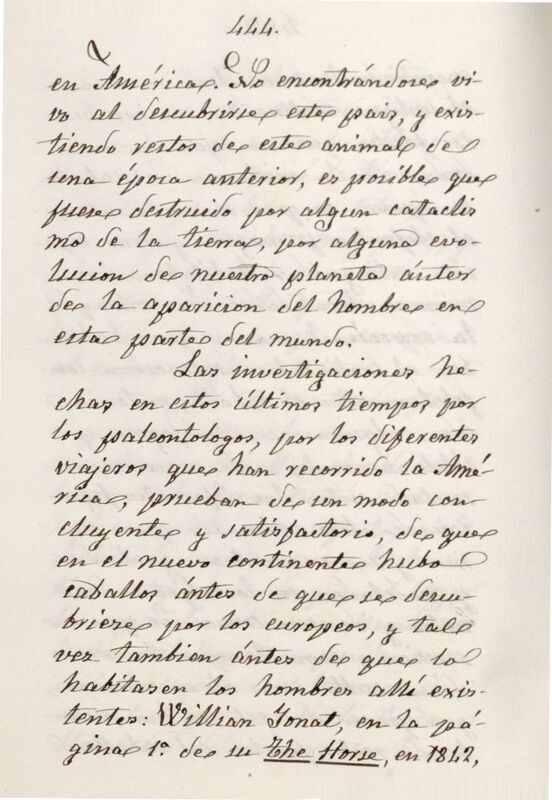 444.
en América. No encontrándose vi-
vo al descubrirse este pais, y exis-
tiendo restos de este animal de
una época anterior, es posible que
fuese destruido por algun cataclis
mo de la tierra, por alguna evo-
lucion de nuestro planeta ántes
de la aparicion del hombre en
esta parte del mundo.
Las investigaciones he-
chas en estos últimos tiempos por
los paleontologos, por los diferentes
viajeros que han recorrido la Amé-
rica, prueban de un modo con-
cluyente y satisfactorio, de que
en el nuevo continente hubo
caballos ántes de que se descu-
briese por los europeos, y tal
vez tambien ántes de que lo
habitasen los hombres allí exis-
tentes: Willian Jonat, en la pá-
gina 1ª de su The Horse, en 1842,